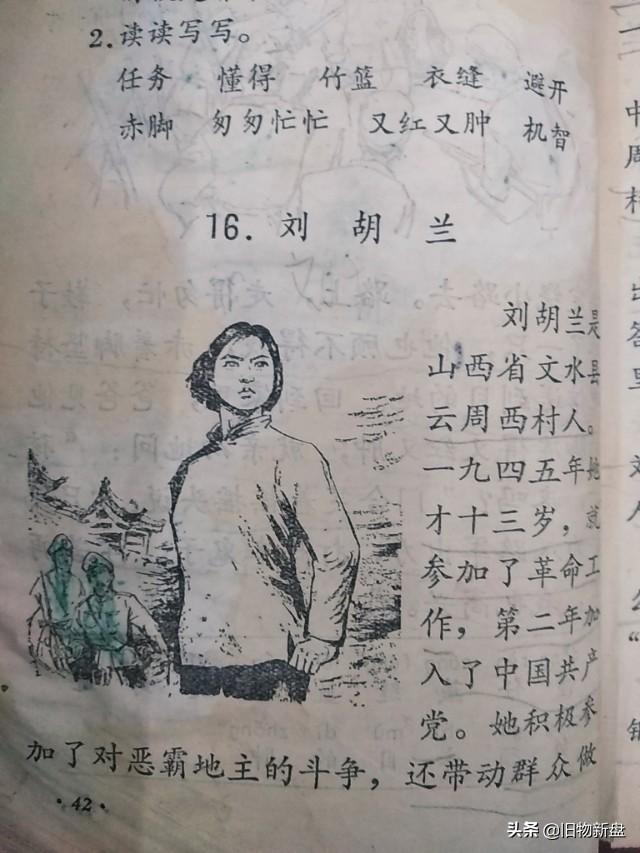 2.读读写写。
任务 懂得 竹篮 衣缝 避开
赤脚 匆匆忙忙 又红又肿 机智
16. 刘胡兰
刘胡兰是
山西省文水县
云周西村人。
一九四五年她
才十三岁，就
参加了革命工
作，第二年加
入了中国共产
党。她积极参
加了对恶霸地主的斗争，还带动群众做
·42·
头条 @旧物新盘